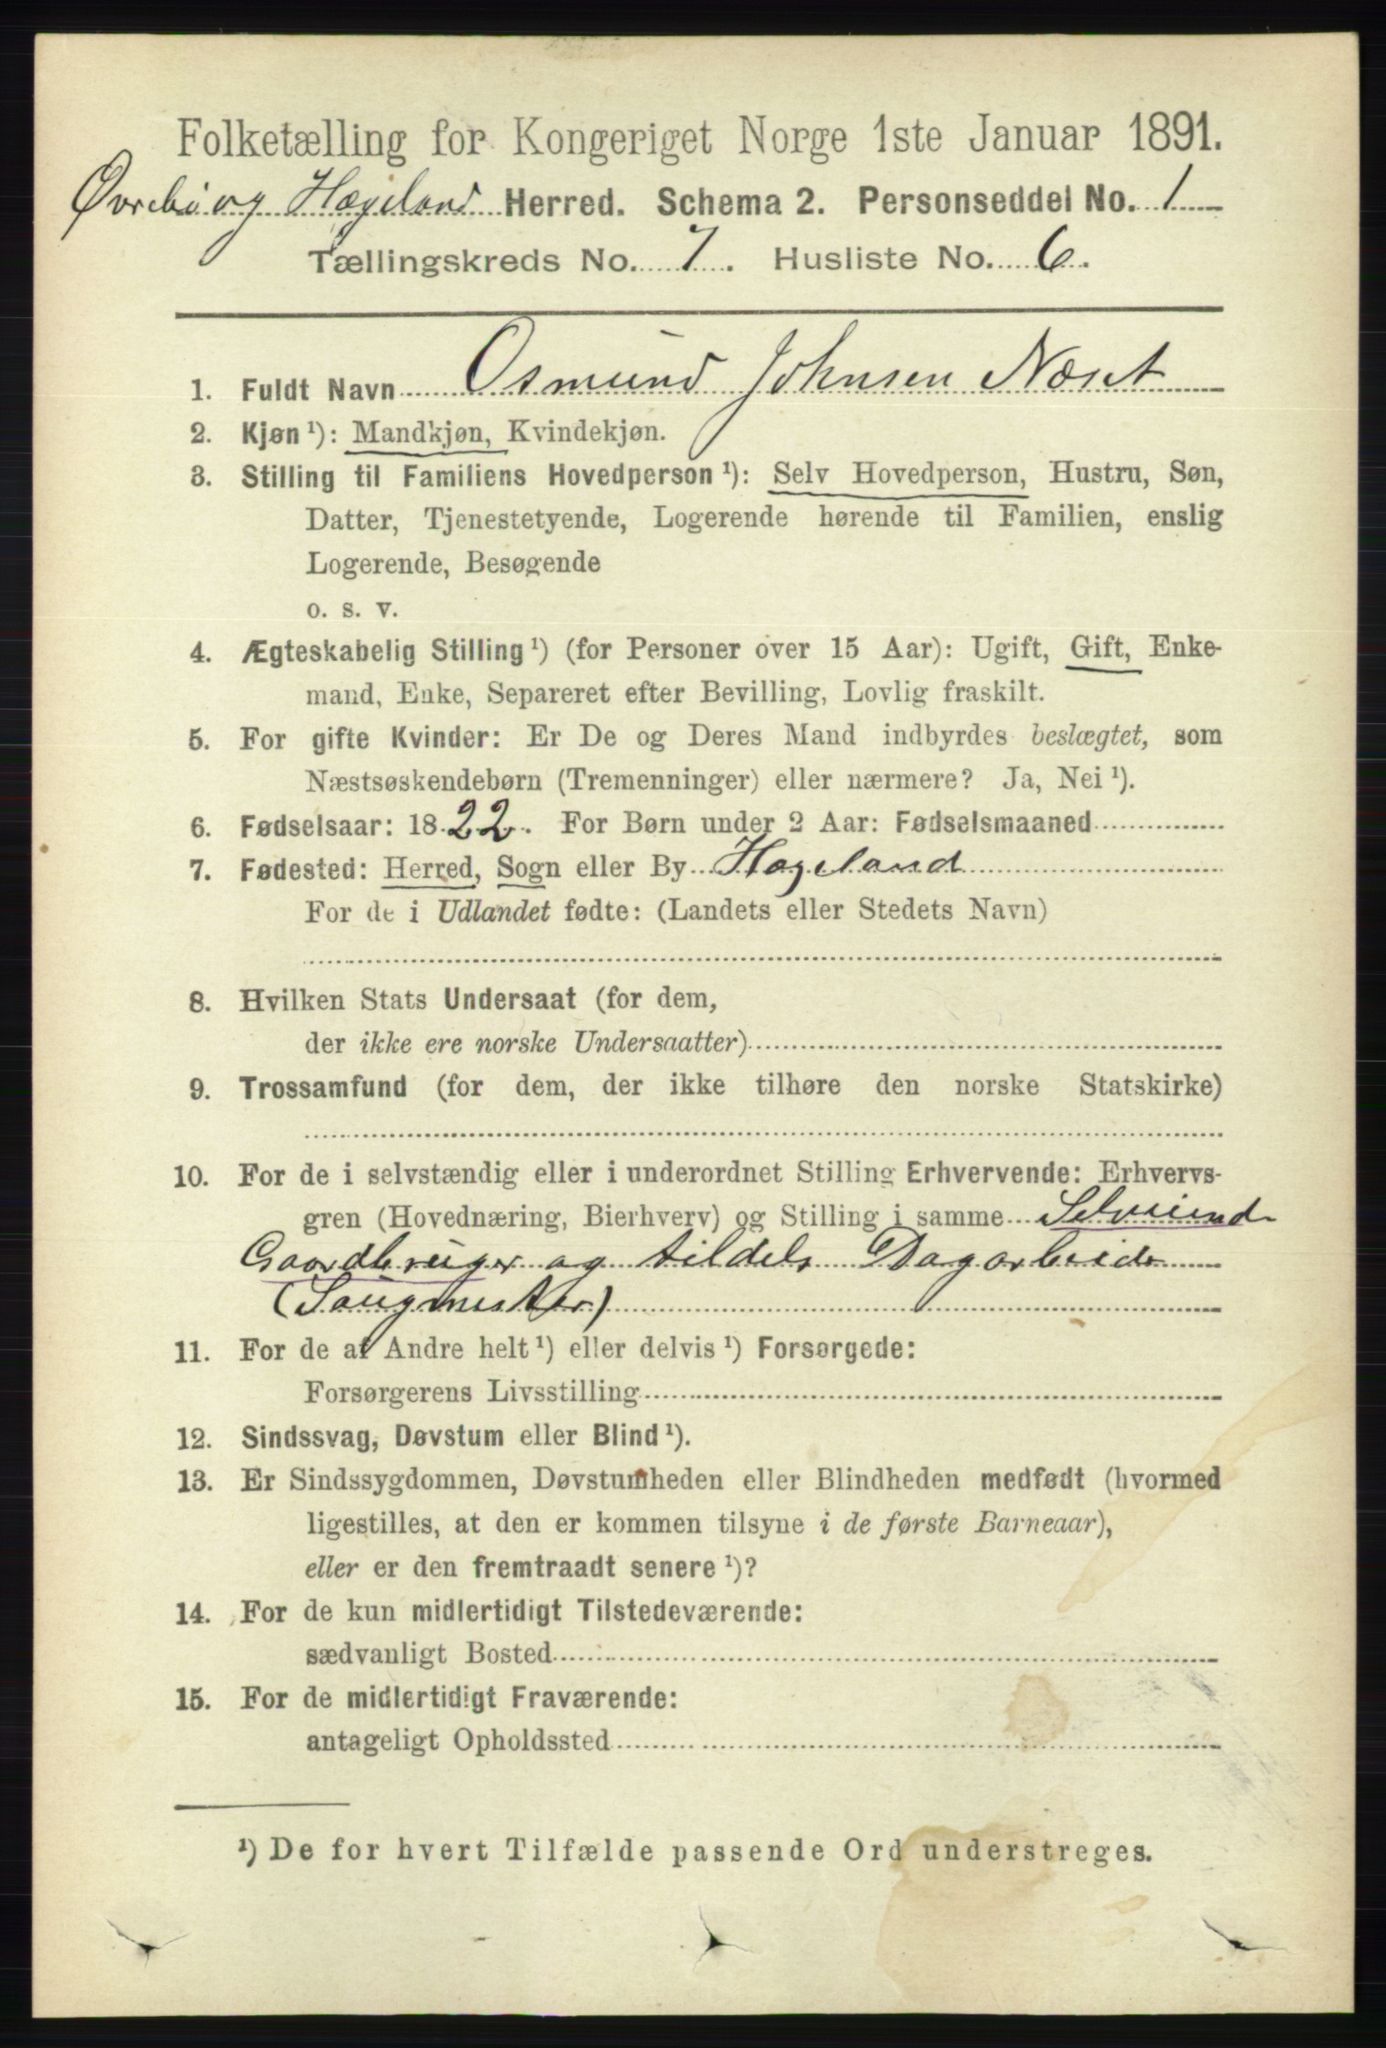 Folketælling for Kongeriget Norge 1ste Januar 1891.
Øvrebö og Hægeland Herred. Schema 2. Personseddel No. 1
Tællingskreds No. 7. Husliste No. 6.
1. Fuldt Navn Osmund Johnsen Næset
2. Kjøn ¹): Mandkjøn, Kvindekjøn.
3. Stilling til Familiens Hovedperson ¹): Selv Hovedperson, Hustru, Søn,
Datter, Tjenestetyende, Logerende hørende til Familien, enslig
Logerende, Besøgende
o. s. v.
4. Ægteskabelig Stilling ¹) (for Personer over 15 Aar): Ugift, Gift, Enke-
mand, Enke, Separeret efter Bevilling, Lovlig fraskilt.
5. For gifte Kvinder: Er De og Deres Mand indbyrdes beslægtet, som
Næstsøskendebørn (Tremenninger) eller nærmere? Ja, Nei ¹).
6. Fødselsaar: 1822. For Børn under 2 Aar: Fødselsmaaned
7. Fødested: Herred, Sogn eller By Hægeland
For de i Udlandet fødte: (Landets eller Stedets Navn)
8. Hvilken Stats Undersaat (for dem,
der ikke ere norske Undersaatter)
9. Trossamfund (for dem, der ikke tilhøre den norske Statskirke)
10. For de i selvstændig eller i underordnet Stilling Erhvervende: Erhvervs-
gren (Hovednæring, Bierhverv) og Stilling i samme Selveiend
Gaardbruger og tildels Dagarbeide
(Saugmester)
11. For de af Andre helt ¹) eller delvis ¹) Forsørgede:
Forsørgerens Livsstilling
12. Sindssvag, Døvstum eller Blind ¹).
13. Er Sindssygdommen, Døvstumheden eller Blindheden medfødt (hvormed
ligestilles, at den er kommen tilsyne i de første Barneaar),
eller er den fremtraadt senere ¹)?
14. For de kun midlertidigt Tilstedeværende:
sædvanligt Bosted
15. For de midlertidigt Fraværende:
antageligt Opholdssted
¹) De for hvert Tilfælde passende Ord understreges.